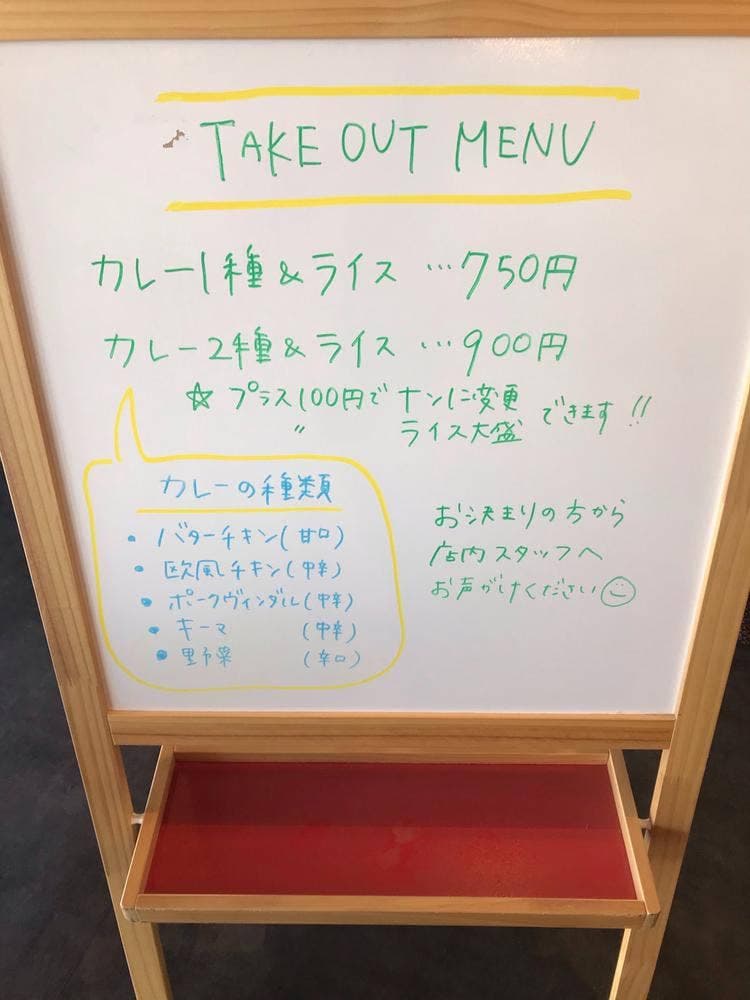 TAKE OUT MENU
カレー1種&ライス …750円
カレー2種&ライス …900円
☆ プラス100円で ナンに変更 できます!!
〃 ライス大盛
カレーの種類
• バターチキン(甘口)
• 欧風チキン(中辛)
• ポークヴィンダル(中辛)
• キーマ (中辛)
• 野菜 (辛口)
お決まりの方から
店内スタッフへ
お声がけください☺